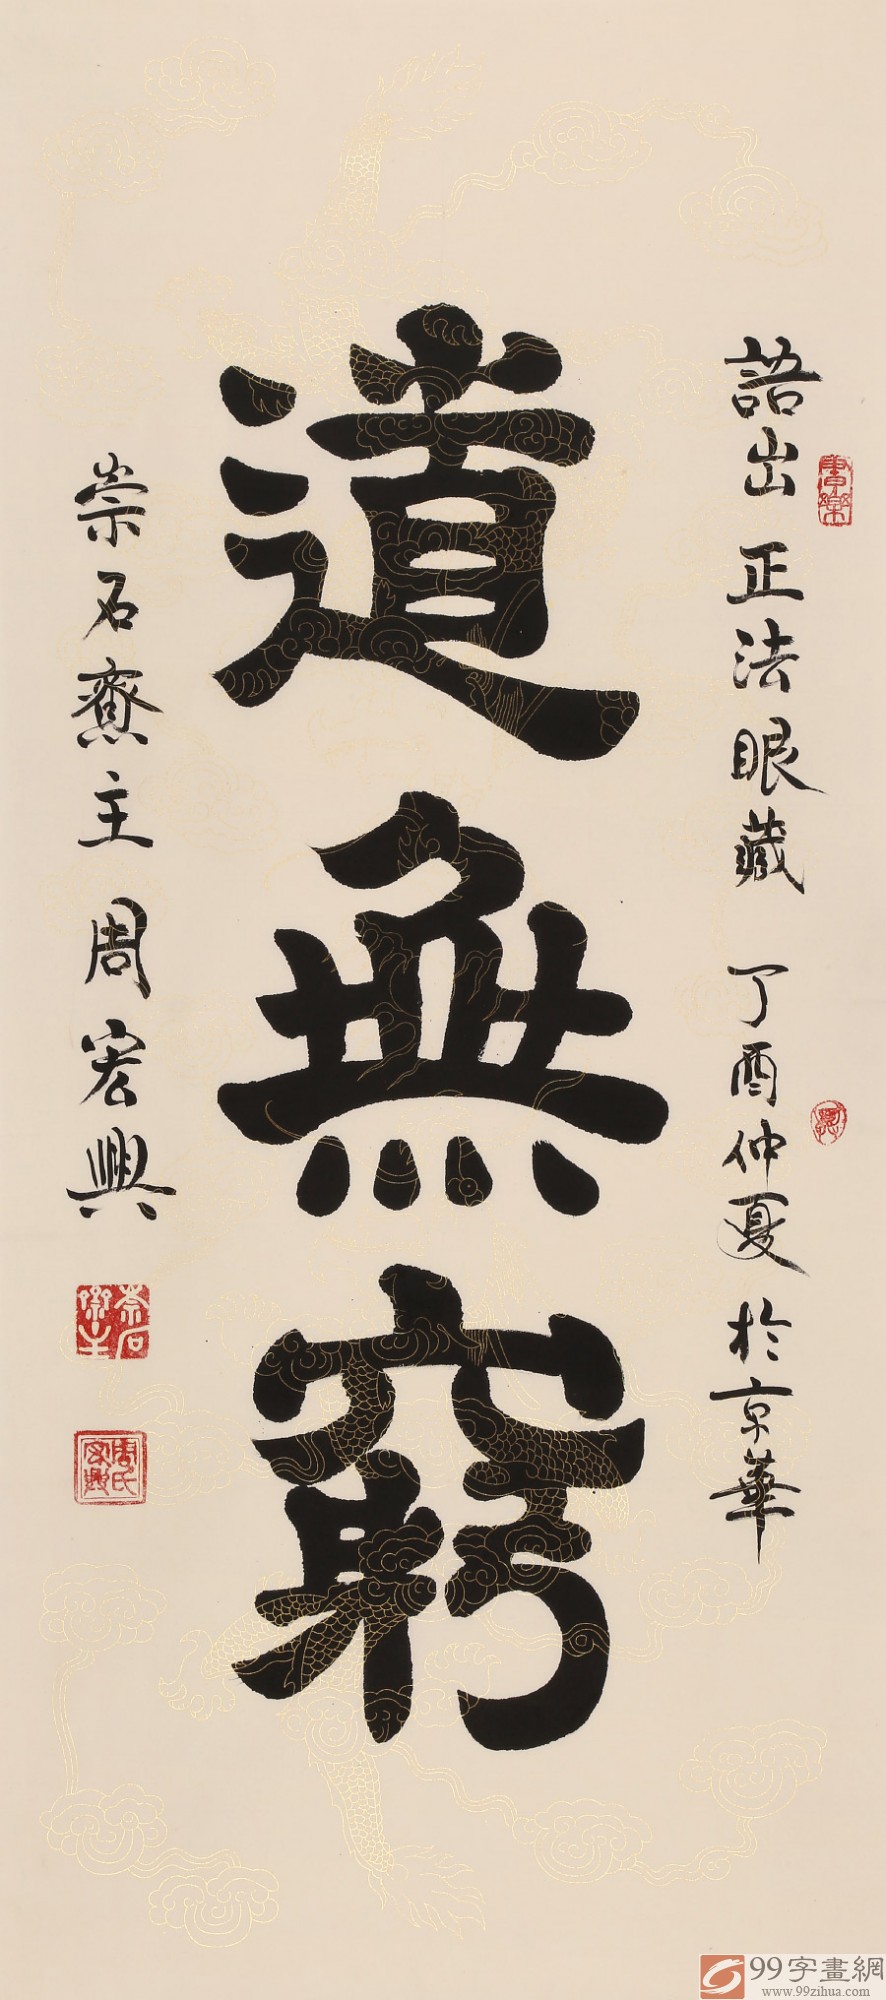 語出正法眼藏 丁酉仲夏於京華
道無窮
崇石齋主周宏興
書樂
99字畫網
www.99zihua.com